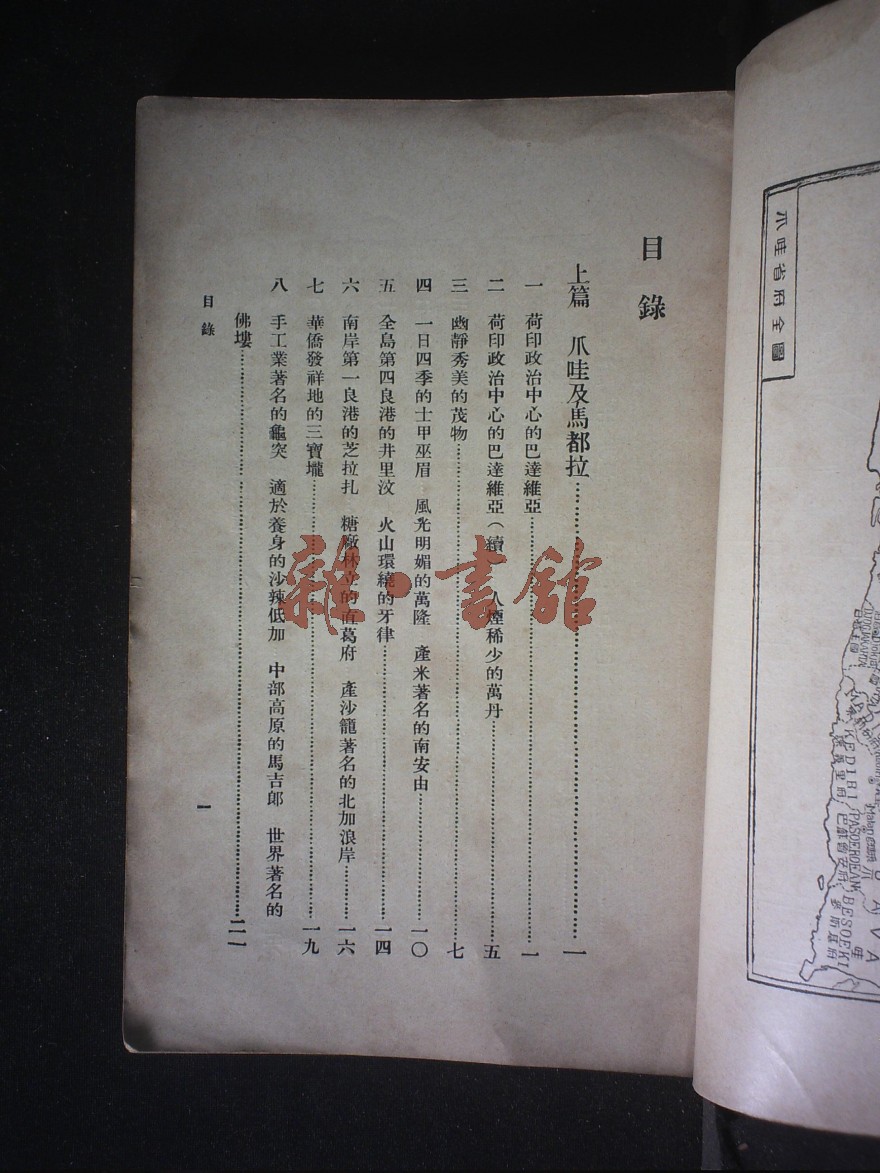 目錄
上篇　爪哇及馬都拉……一
一　荷印政治中心的巴達維亞……一
二　荷印政治中心的巴達維亞（續）　人煙稀少的萬丹……五
三　幽靜秀美的茂物……七
四　一日四季的士甲巫眉　風光明媚的萬隆　產米著名的南安由……一〇
五　全島第四良港的井里汶　火山環繞的牙律……一四
六　南岸第一良港的芝拉扎　糖廠林立的直葛府　產沙籠著名的北加浪岸……一六
七　華僑發祥地的三寶壠……一九
八　手工業著名的龜突　適於養身的沙辣低加　中部高原的馬吉郎　世界著名的
佛壋……二一
目錄
一
雜·書館
爪哇省府全圖
KEDIRI
PASOEROEAN
BESOEKI
哇